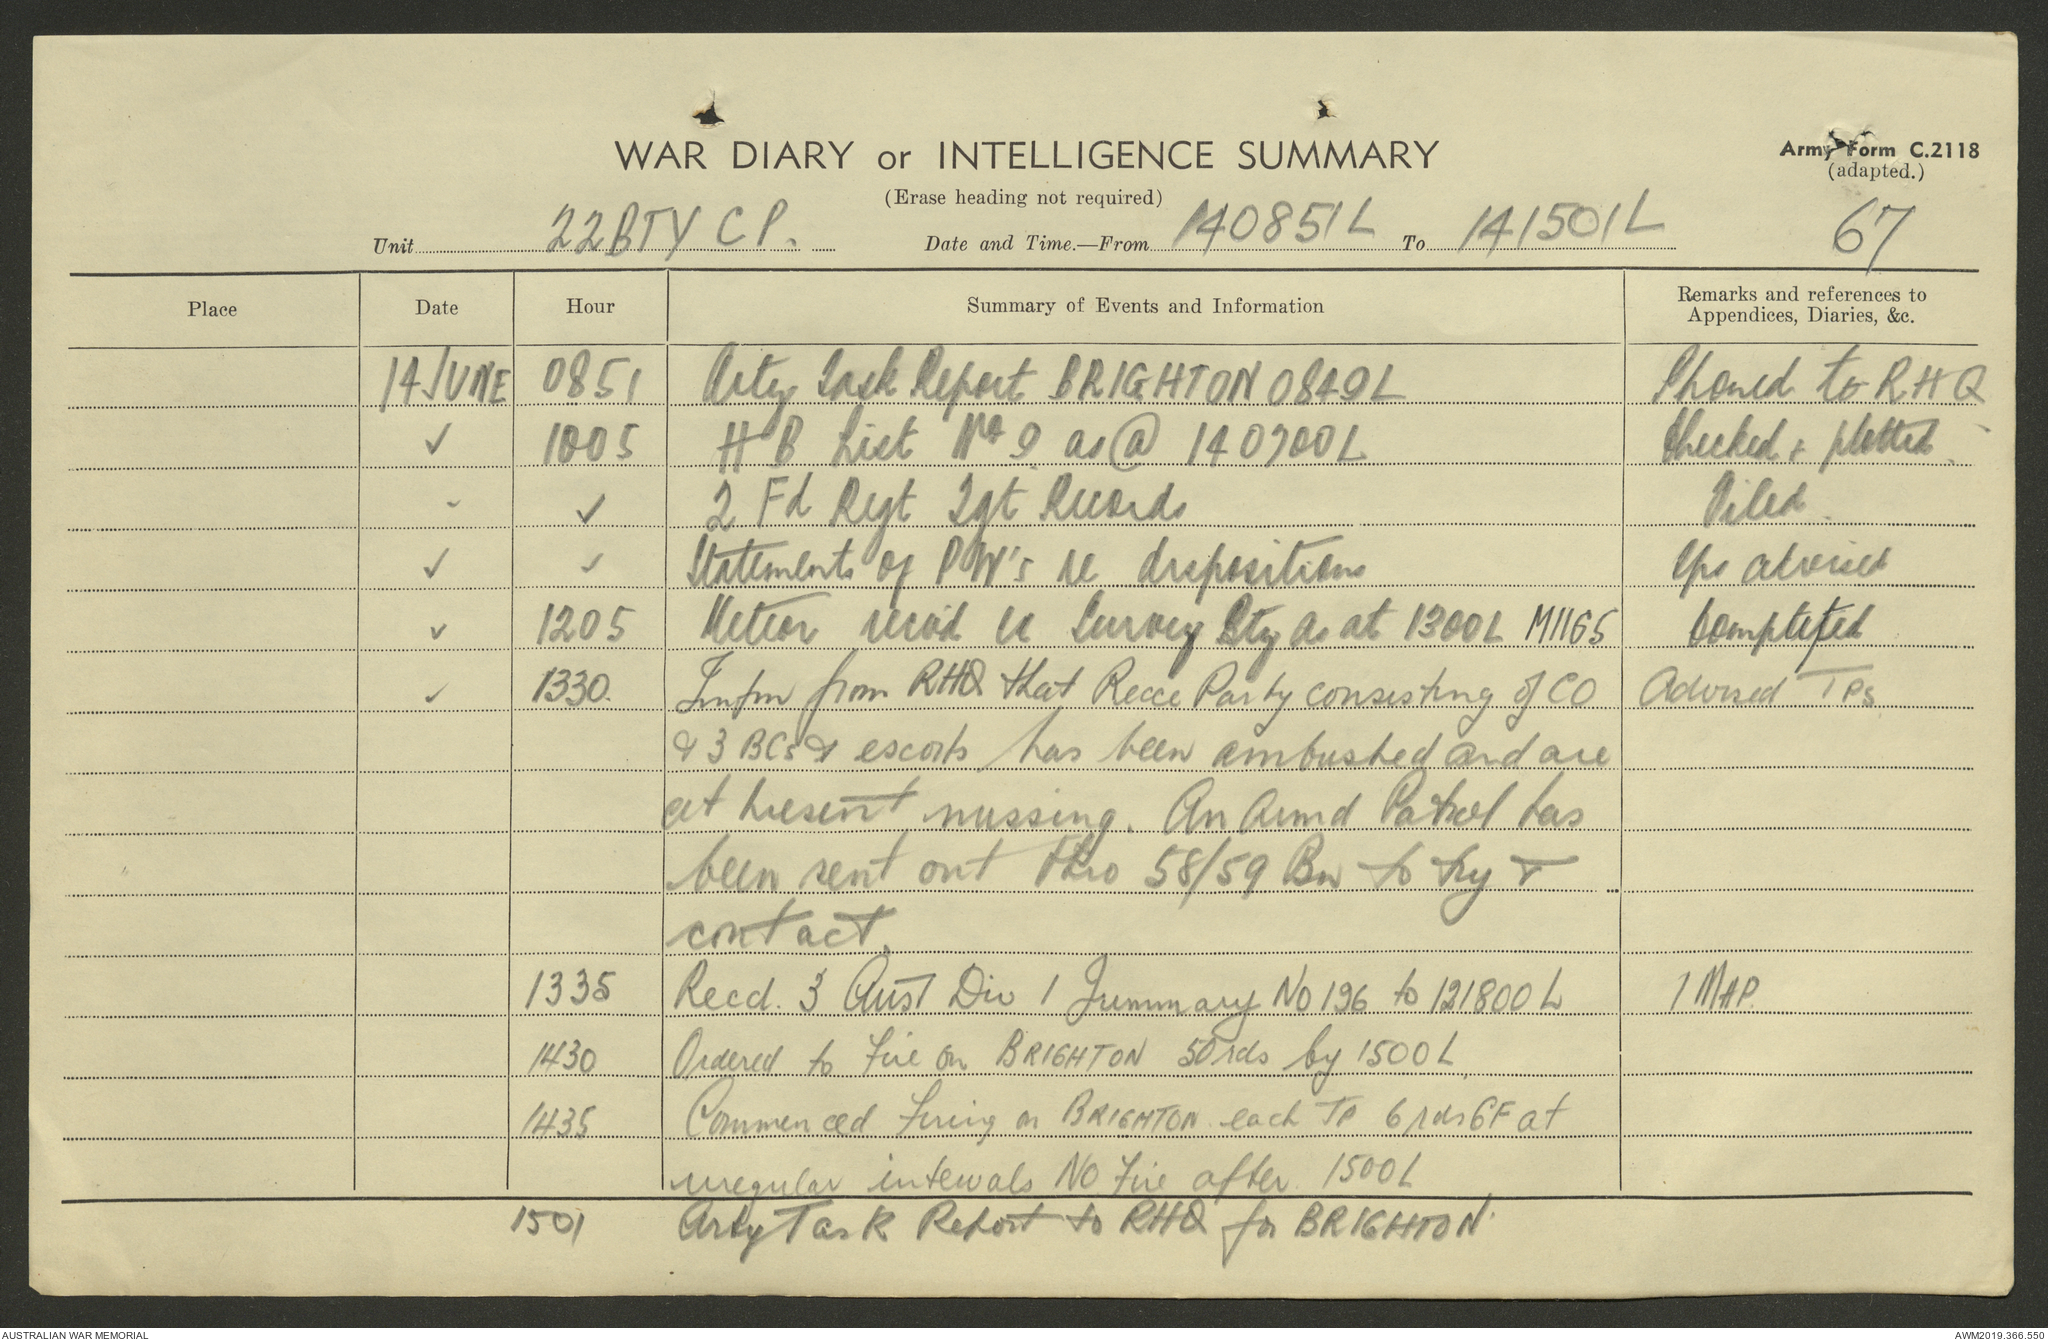 WAR DIARY or INTELLIGENCE SUMMARY
Army Form C.2118
(adapted.)
(Erase heading not required)
67
Unit 22 BTY C P. Date and Time.—From 140851L To 141501L
Place Date Hour Summary of Events and Information Remarks and references to Appendices, Diaries, &c.
14 JUNE 0851 Arty Task Report BRIGHTON 0849L Phoned to RHQ
✓ 1005 H B List No 9 as @ 140700L Checked & plotted.
✓ 2 Fd Regt Tgt Records Filed.
✓ ✓ Statements of PW's re dispositions Ops advised
✓ 1205 Meteor recvd ex Survey Bty as at 1300L M1165 Completed
✓ 1330. Infm from RHQ that Recce Party consisting of CO Advised TPs
& 3 BCs & escorts has been ambushed and are
at present missing. An Armd Patrol has
been sent out thro 58/59 Bn to try &
contact.
1335 Recd. 3 Aust Div I Summary No 196 to 121800L 1 MAP.
1430 Ordered to Fire on BRIGHTON 50 rds by 1500L.
1435 Commenced Firing on BRIGHTON each TP 6 rds GF at
irregular intervals No Fire after 1500L
1501 Arty Task Report to RHQ for BRIGHTON
AUSTRALIAN WAR MEMORIAL
AWM2019.366.550